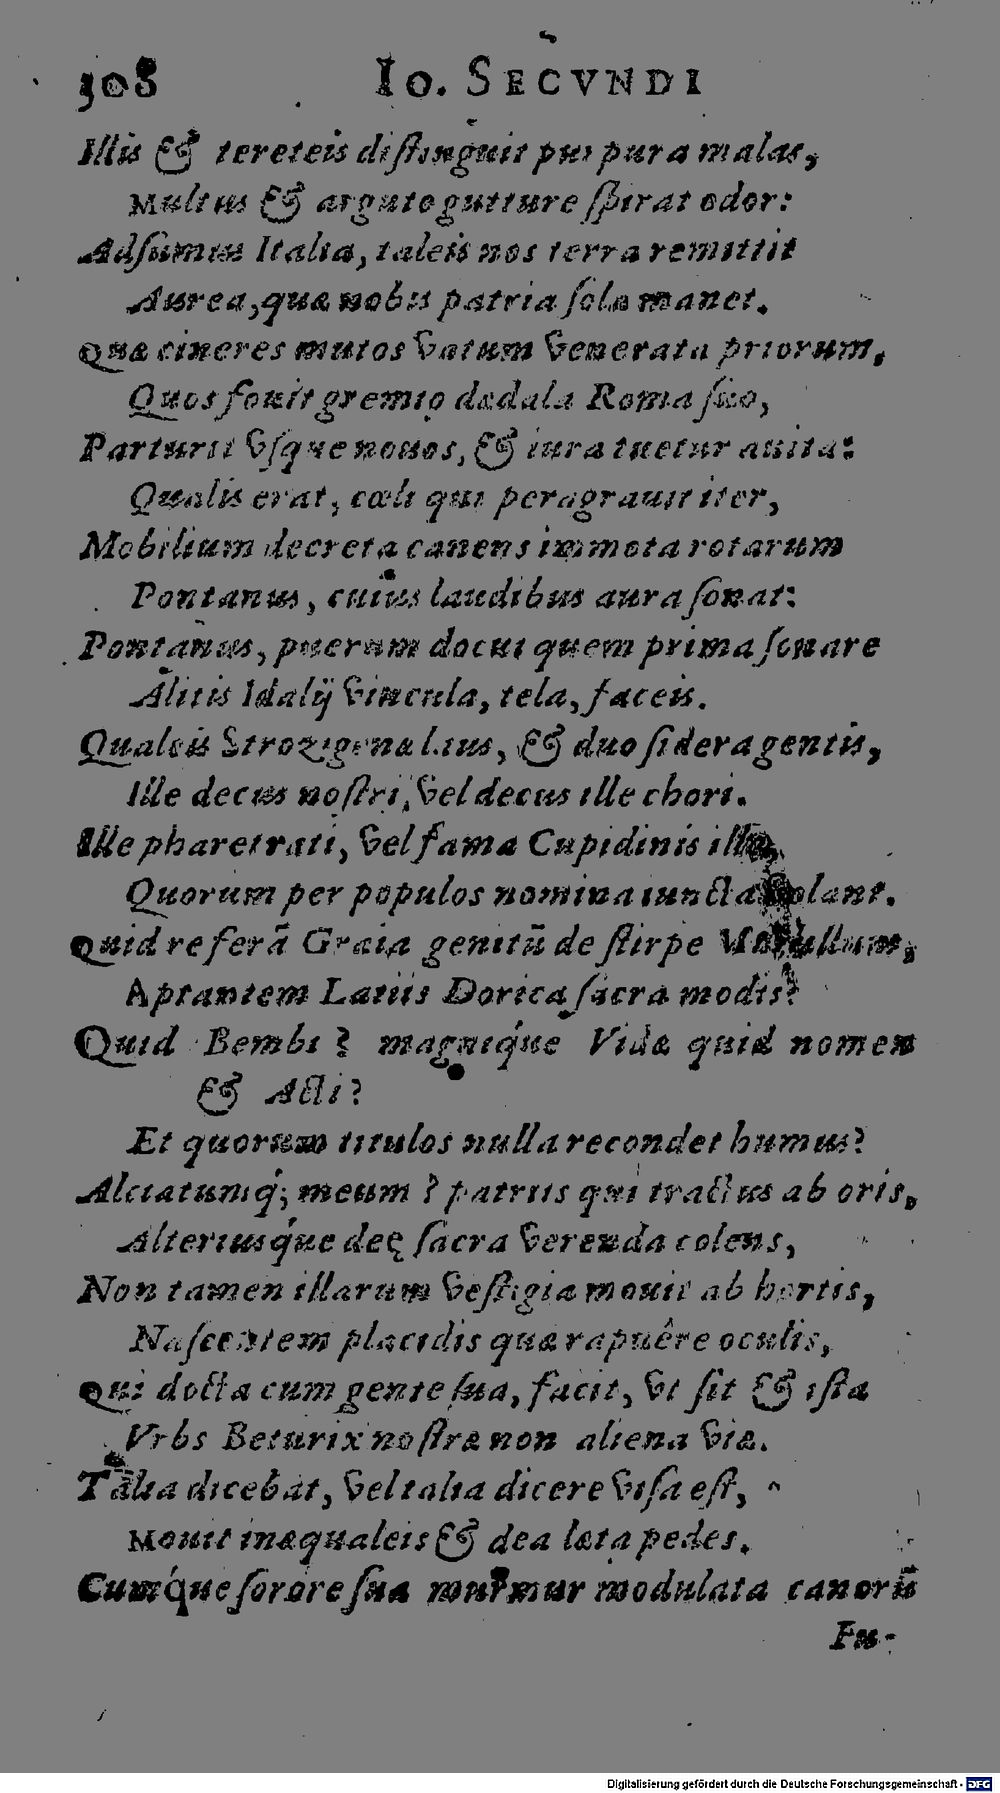 308 Io. SECVNDI
Illis & tereteis distinguit purpura malas,
Multus & arguto gutture spirat odor:
Adsumus Italia, taleis nos terra remittit
Aurea, quæ nobis patria sola manet.
Quæ cineres mutos vatum venerata priorum,
Quos fouit gremio dædala Roma suo,
Parturit vsque nouos, & iura tuetur auita:
Qualis erat, cœli qui peragrauit iter,
Mobilium decreta canens immota rotarum
Pontanus, cuius laudibus aura sonat:
Pontanus, puerum docui quem prima sonare
Alitis Idalij vincula, tela, faceis.
Qualeis Strozigenæ duo sidera gentis,
Ille decus nostri, vel decus ille chori.
Ille pharetrati, vel fama Cupidinis ille,
Quorum per populos nomina iuncta volant.
Quid referā Graia genitū de stirpe Marullum,
Aptantem Latiis Dorica sacra modis?
Quid Bembi? magniq́ue Vidæ quid nomen
& Acti?
Et quorum titulos nulla recondet humus?
Alciatumq́; meum? patriis qui tractus ab oris,
Alteriusq́ue deę sacra verenda colens,
Non tamen illarum vestigia mouit ab hortis,
Nascentem placidis quæ rapuêre oculis,
Qui docta cum gente sua, facit, vt sit & ista
Vrbs Beturix nostræ non aliena viæ.
Talia dicebat, vel talia dicere visa est,
Mouit inæqualeis & dea læta pedes.
Cumq́ue sorore sua murmur modulata canorū
Fu-
Digitalisierung gefördert durch die Deutsche Forschungsgemeinschaft - DFG